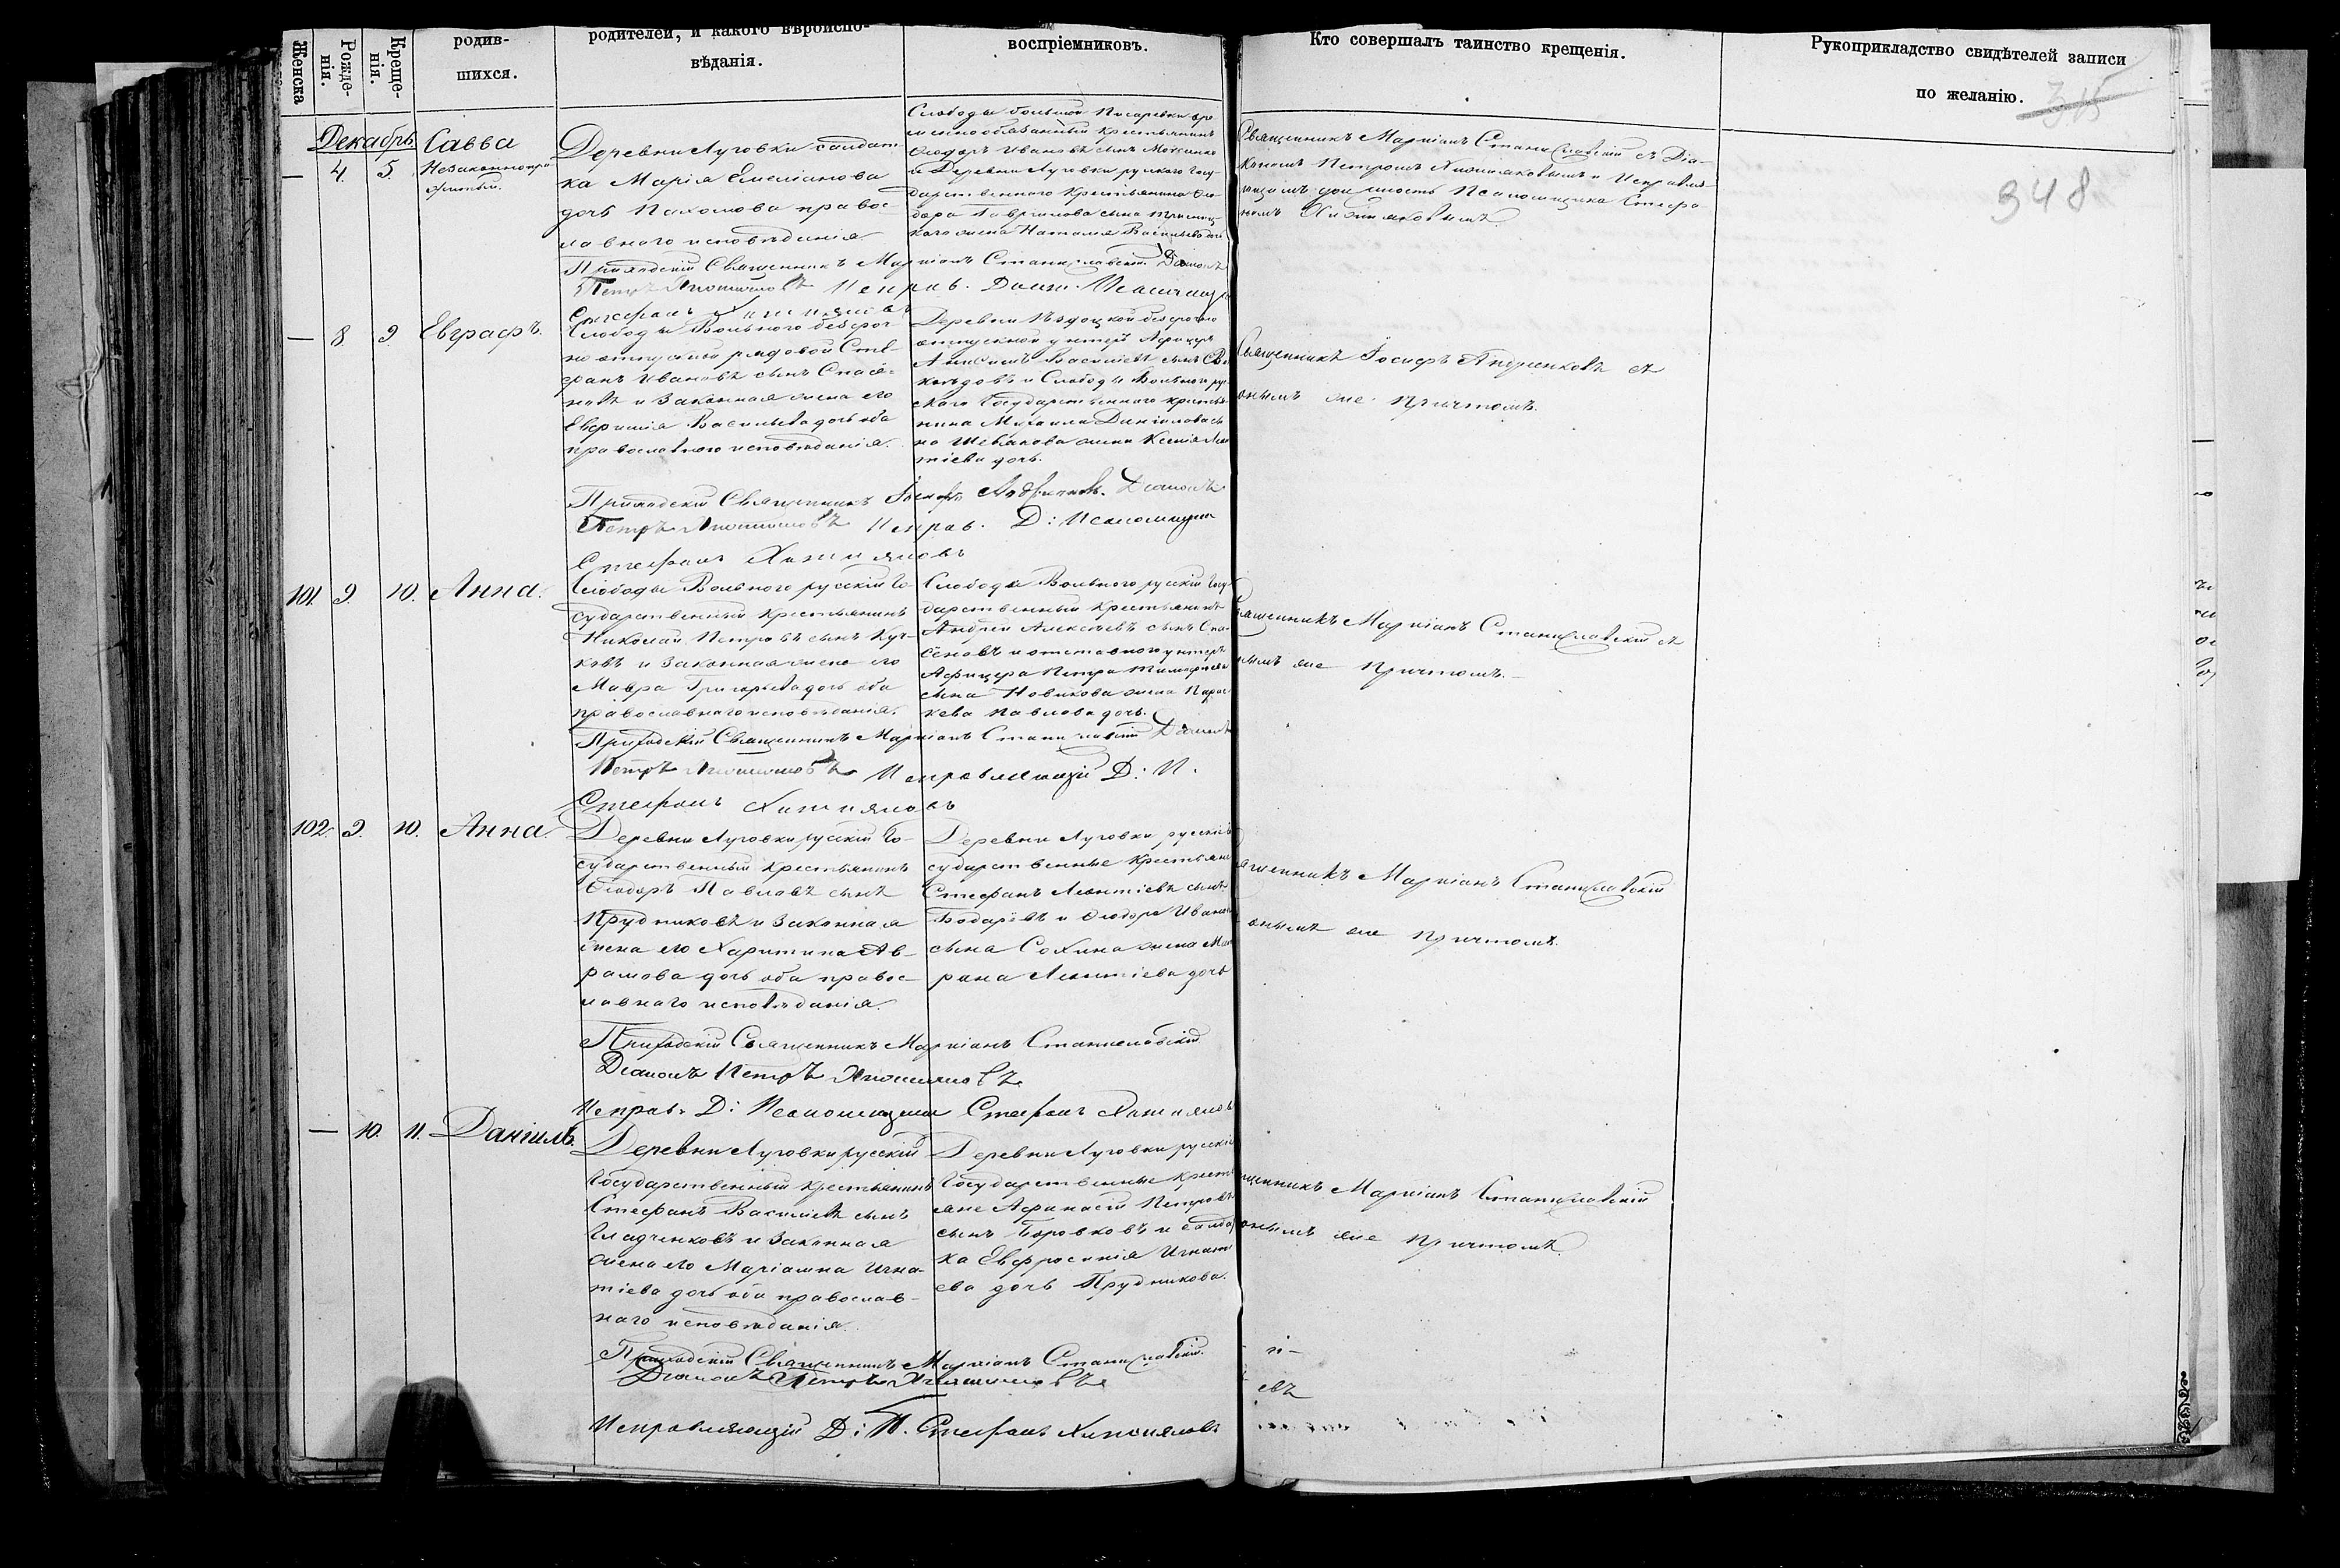 Женска
Рожде-
нія.
Креще-
нія.
родив-
шихся.
родителей, и какого вѣроиспо-
вѣданія.
воспріемниковъ.
Кто совершалъ таинство крещенія.
Рукоприкладство свидѣтелей записи
по желанію.
315
348
Декабрь
— 4. 5.
Савва
Незаконнопри
житый.
Деревни Луговки солдат
ка Марія Емеліанова
дочь Пахомова правос-
лавнаго исповѣданія
Слободы большой Писаревки вре
меннообязанный крестьянинъ
Ѳеодоръ Ивановъ сынъ
и Деревни Луговки рускаго Госу-
дарственнаго Крестьянина Ѳео
дора Гаврилова сына
жена Наталія Васильева
Священникъ Маркіанъ Станиславскій съ Діа-
кономъ Петромъ и Исправля-
ющимъ должность Псаломщика Стефа
номъ Хижняковымъ
Приходскій Священникъ Маркіанъ Станиславскій Діаконъ
Петръ Исправ. Долж. Псаломщ
Стефанъ Хижняковъ
— 8. 9. Евграфъ.
Слободы Вольного безсроч-
но отпускный рядовой Сте-
фанъ Ивановъ сынъ Спасё-
новъ и Законная жена его
Евфимія Васильева дочь оба
православнаго исповѣданія.
Деревни безсрочно
отпускной унтеръ Афицеръ
Васильевъ сынъ
и Слободы Вольного ру-
скаго Государственнаго крестья-
нина Михаила Даніилова сы
на Шевакова жена Ксенія Леон
тіева дочь.
Священникъ Іосифъ Андренковъ съ
онымъ же причтомъ.
Приходскій Священникъ Іосифъ Андренковъ. Діаконъ
Петръ Исправ. Д: Псаломщика
Стефанъ Хижняковъ
101. 9. 10. Анна.
Слободы Вольного русскій Го-
сударственный Крестьянинъ
Николай Петровъ сынъ Куч-
ковъ и Законная жена его
Мавра Григорьева дочь оба
православнаго исповѣданія.
Слободы Вольного русскій Госу-
дарственный Крестьянинъ
Андрей Алексѣевъ сынъ Спа-
сёновъ и отставного унтеръ
Афицера Петра Тимофѣева
сына Новикова жена Парас-
кева Павлова дочь.
Священникъ Маркіанъ Станиславскій съ
нымъ же причтомъ.
Приходскій Священникъ Маркіанъ Станиславскій Діаконъ
Петръ Исправляющій Д: П.
Стефанъ Хижняковъ
102. 9. 10. Анна
Деревни Луговки русскій Го-
сударственный Крестьянинъ
Ѳеодоръ Павловъ сынъ
Прудниковъ и Законная
жена его Харитина Ав-
рамова дочь оба правос-
лавнаго исповѣданія.
Деревни Луговки русскіе
сударственные Крестьяне
Стефанъ Леонтіевъ сынъ
Бодарёвъ и Ѳеодора Иванова
сына Сохина жена Ма
рина Леонтіева дочь
ященникъ Маркіанъ Станиславскій
онымъ же причтомъ.
Приходскій Священникъ Маркіанъ Станиславскій
Діаконъ Петръ
Исправ. Д: Псаломщика Стефанъ Хижняковъ
— 10. 11. Даніилъ.
Деревни Луговки русскій
Государственный Крестьянинъ
Стефанъ Василіевъ сынъ
Гладченковъ и Законная
жена его Маріамна Игна-
тіева дочь оба православ-
наго исповѣданія.
Деревни Луговки русскіе
Государственные Кресть
яне Афанасій Петровъ
сынъ Боровковъ и солдат
ка Евфросинія Игнати
ева дочь Прудникова.
щенникъ Маркіанъ Станиславскій
онымъ же причтомъ.
Приходскій Священникъ Маркіанъ Станиславскій.
Діаконъ Петръ
Исправляющій Д: П. Стефанъ Хижняковъ
евъ